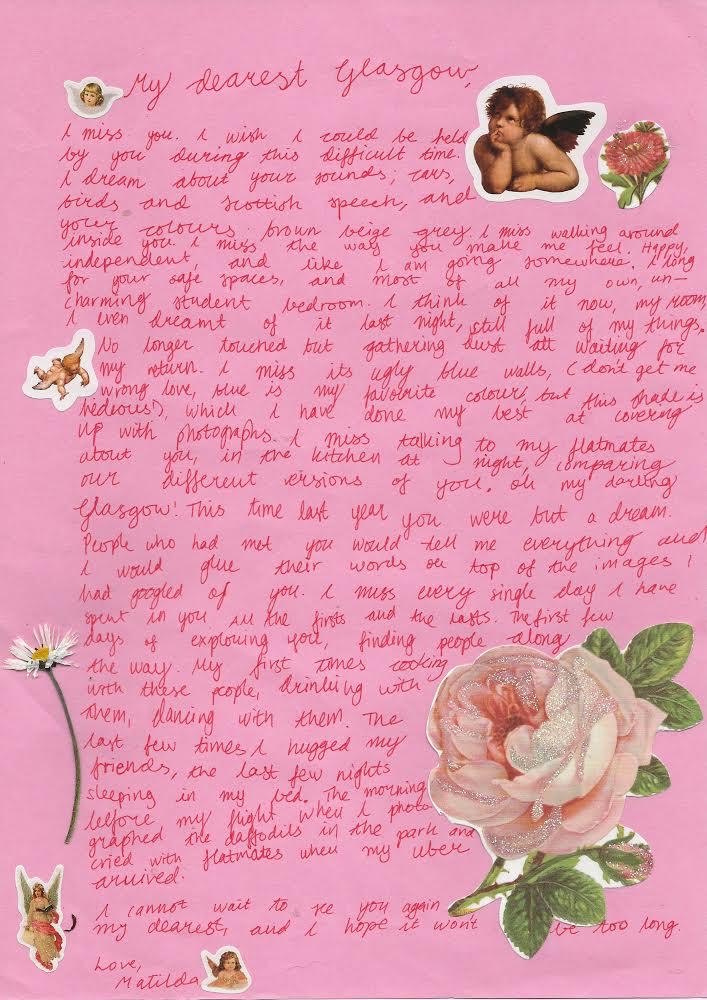 My dearest Glasgow,
I miss you. I wish I could be held
by you during this difficult time.
I dream about your sounds; cars,
birds and scottish speech, and
your colours brown beige grey. I miss walking around
inside you. I miss the way you make me feel. Happy,
independent, and like I am going somewhere. I long
for your safe spaces, and most of all my own, un-
charming student bedroom. I think of it now, my room,
I even dreamt of it last night, still full of my things.
No longer touched but gathering dust all waiting for
my return. I miss its ugly blue walls, (don't get me
wrong love, blue is my favorite colour, but this shade is
hideous!), which I have done my best at covering
up with photographs. I miss talking to my flatmates
about you, in the kitchen at night, comparing
our different versions of you. Oh my darling
Glasgow! This time last year you were but a dream.
People who had met you would tell me everything and
I would glue their words on top of the images I
had googled of you. I miss every single day I have
spent in you. All the firsts and the lasts. The first few
days of exploring you, finding people along
the way. My first times cooking
with these people, drinking with
them, dancing with them. The
last few times I hugged my
friends, the last few nights
sleeping in my bed. The morning
before my flight when I photo-
graphed the daffodils in the park and
cried with flatmates when my uber
arrived.
I cannot wait to see you again
my dearest, and I hope it won't be too long.
Love,
Matilda